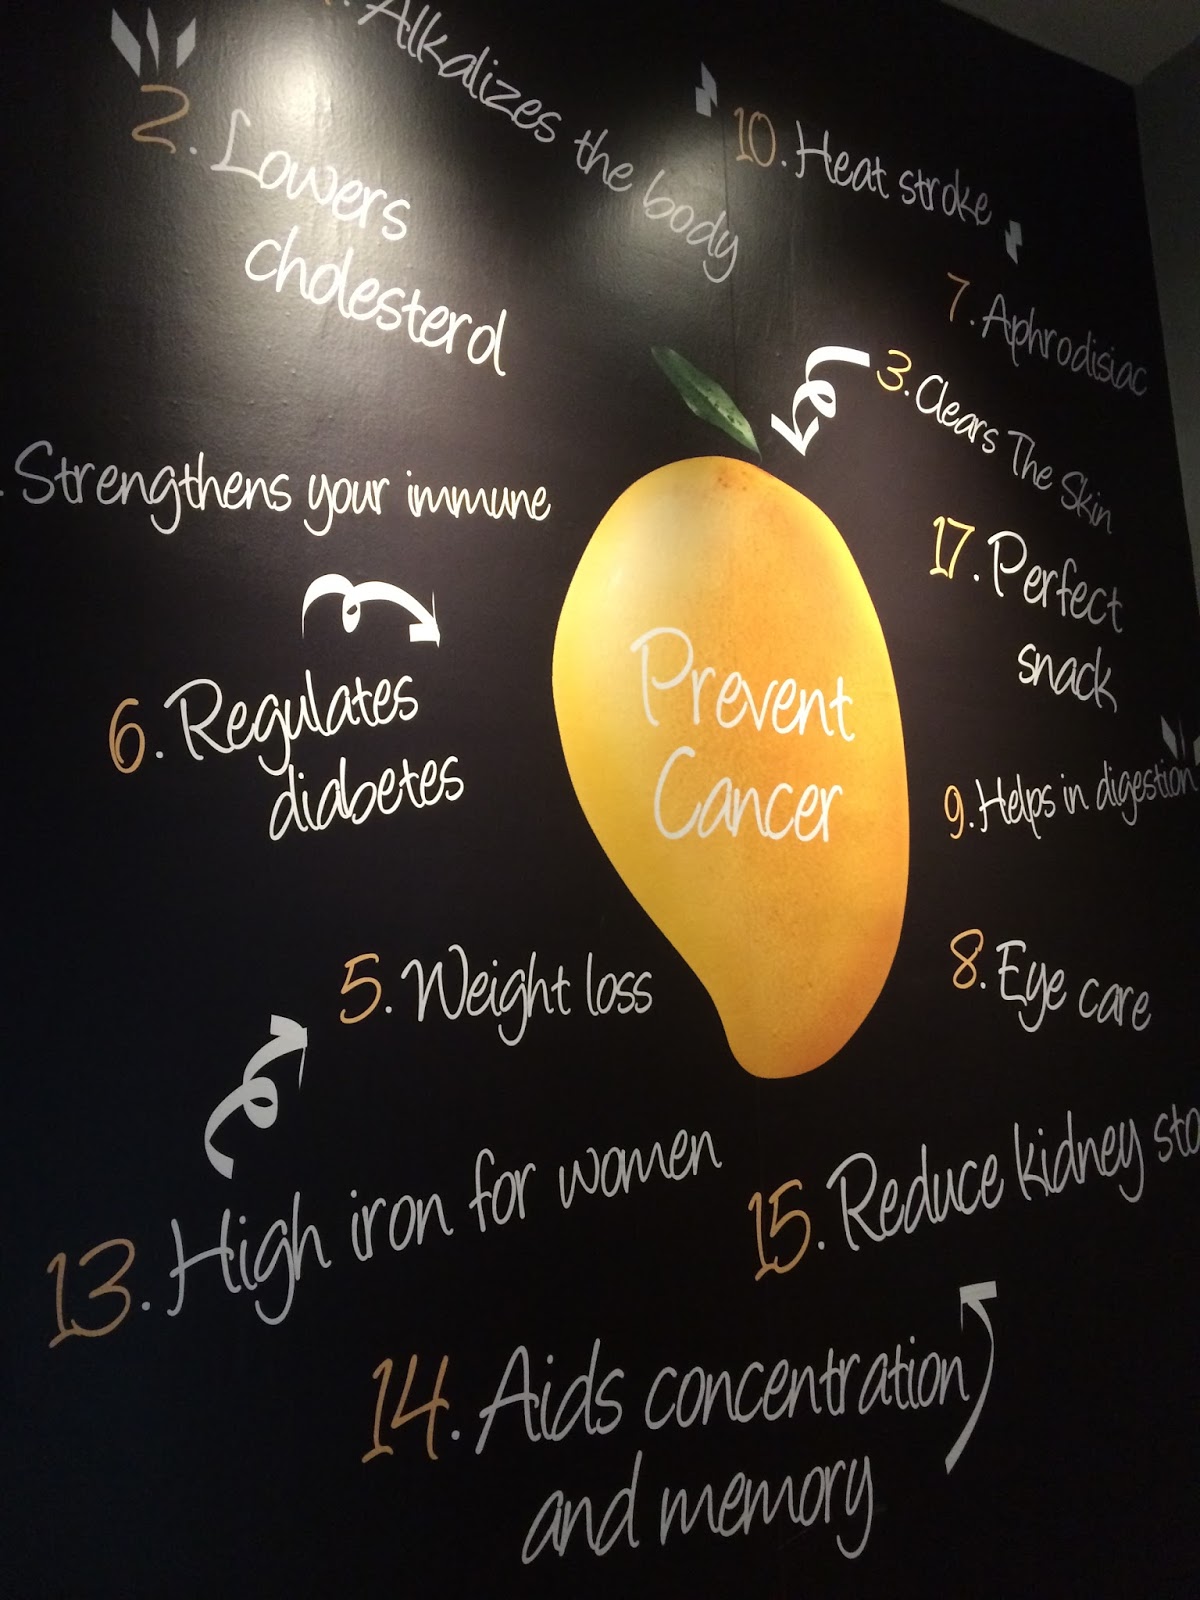 Alkalizes the body
2. Lowers
cholesterol
10. Heat stroke
7. Aphrodisiac
3. Clears The Skin
Strengthens your immune
17. Perfect
snack
Prevent
Cancer
6. Regulates
diabetes
9. Helps in digestion
5. Weight loss
8. Eye care
13. High iron for women
15. Reduce kidney sto
14. Aids concentration
and memory